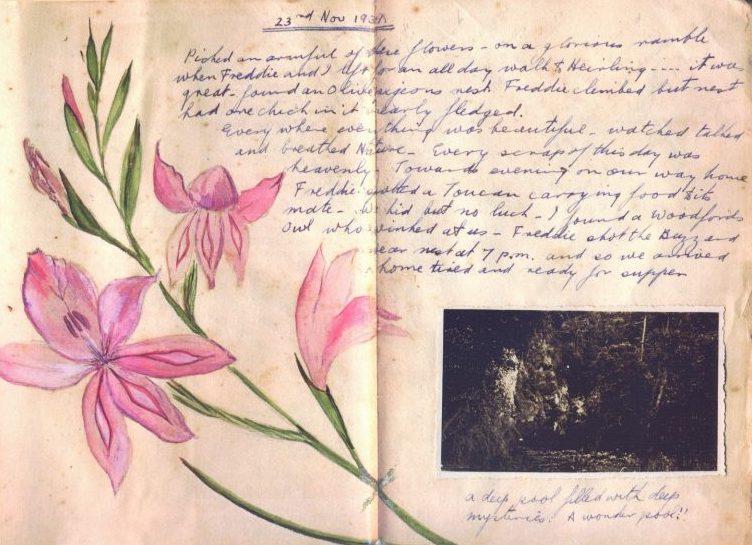 23rd Nov 193
Picked an armful of these flowers - on a glorious ramble
when Freddie and I left for an all day walk to Heirling ---- it was
great - found an Olive pigeons nest Freddie climbed but nest
had one chick in it nearly fledged.
Everywhere everything was beautiful - watched talked
and breathed Nature - Every scrap of this day was
heavenly. Towards evening on our way home
Freddie spotted a Toucan carrying food to its
mate - We hid but no luck - I found a Woodfords
Owl who winked at us - Freddie shot the Buzzard
near nest at 7 p.m. and so we arrived
home tired and ready for supper
a deep pool filled with deep
mysteries! A wonder pool!!